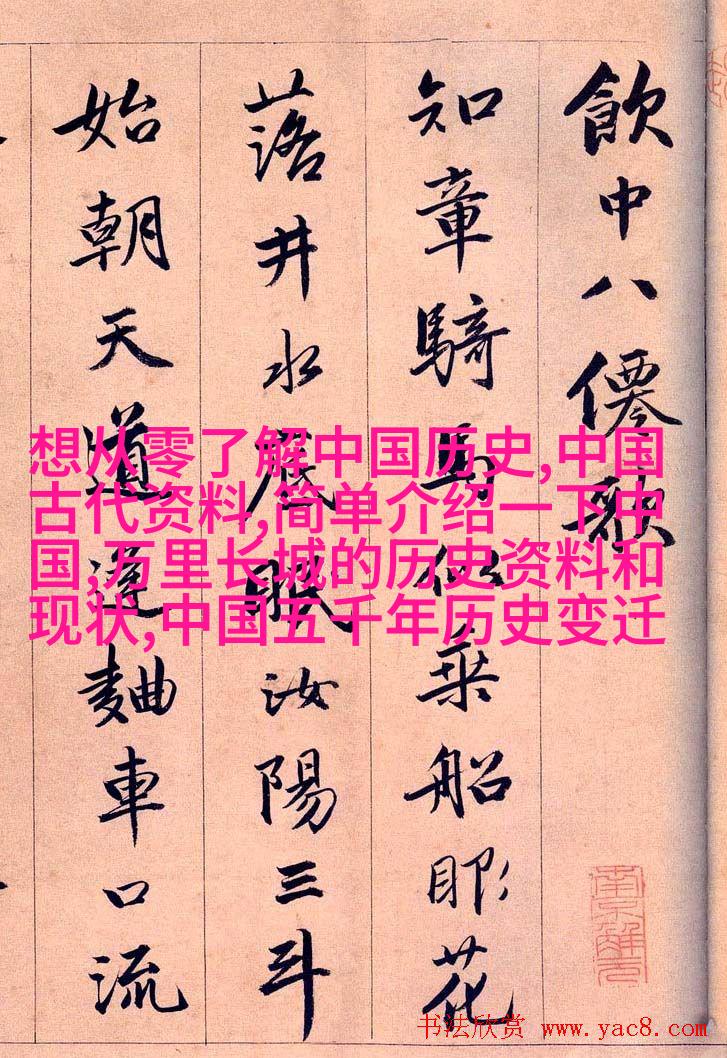 飲中八僊歌
知章騎馬似乗船眼花
落井水底眠汝陽三斗
始朝天道逢麯車口流
想从零了解中国历史,中国
古代资料,简单介绍一下中
国,万里长城的历史资料和
现状,中国五千年历史变迁
南京解元
书法欣赏 www.yac8.com